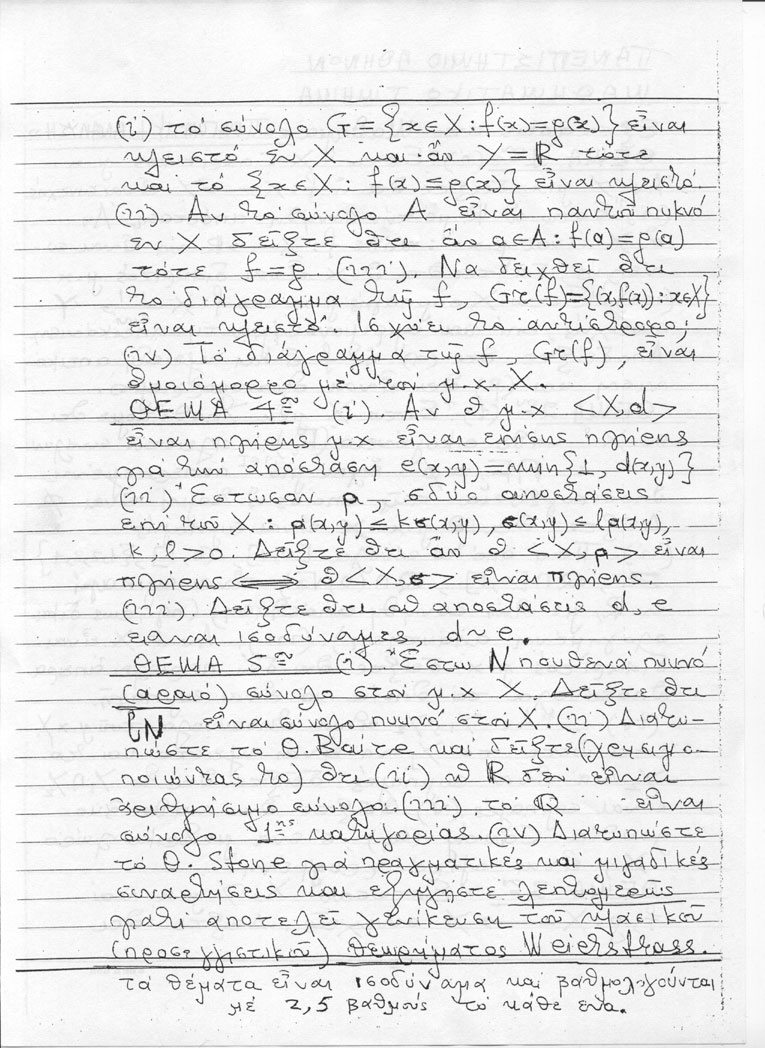 (i) τό σύνολο G = {x∈X : f(x)=g(x)} εἶναι
κλειστό ἐν X και ἄν Y = ℝ τότε
και τό {x∈X : f(x) ≤ g(x)} εἶναι κλειστό.
(ii). Αν τό σύνολο A εἶναι παντοῦ πυκνό
ἐν X δεῖξτε ὅτι ἄν a∈A : f(a)=g(a)
τότε f=g. (iii). Να δειχθεῖ ὅτι
το διάγραμμα τῆς f, Gr(f)={(x,f(x)) : x∈X}
εἶναι κλειστό. Ισχύει το αντίστροφο;
(iv) Τό διάγραμμα τῆς f, Gr(f), εἶναι
ὁμοιόμορφο μέ τόν μ.χ. X.
ΘΕΜΑ 4ον (i). Αν ὁ μ.χ <X,d>
εἶναι πλήρης μ.χ εἶναι επίσης πλήρης
γιά τήν απόσταση e(x,y)=min{1, d(x,y)}
(ii) Ἔστωσαν ρ, σ δύο αποστάσεις
επί τοῦ X : ρ(x,y) ≤ kσ(x,y), σ(x,y) ≤ lρ(x,y),
k, l>0. Δεῖξτε ὅτι ἄν ὁ <X, ρ> εἶναι
πλήρης ⟺ ὁ <X, σ> εἶναι πλήρης.
(iii). Δεῖξτε ὅτι οἱ αποστάσεις d, e
ειαναι ισοδύναμες, d~e.
ΘΕΜΑ 5ον (i) Ἔστω N πουθενά πυκνό
(αραιό) σύνολο στόν μ.χ X. Δεῖξτε ὅτι
∁N εἶναι σύνολο πυκνό στόν X. (ii) Διατυ-
πώστε τό Θ. Baire καί δεῖξτε (χρησιμο-
ποιώντας το) ὅτι (ii) τό ℝ δέν εἶναι
ἀριθμήσιμο σύνολο. (iii) το ℚ εἶναι
σύνολο 1ης κατηγορίας. (iv) Διατυπώστε
τό Θ. Stone γιά πραγματικές και μιγαδικές
συναρτήσεις και εξηγήστε λεπτομερῶς
γιατί αποτελεῖ γενίκευση τοῦ κλασικοῦ
(προσεγγιστικοῦ) θεωρήματος Weierstrass.
τά θέματα εἶναι ισοδύναμα καί βαθμολογούνται
μέ 2,5 βαθμούς τό κάθε ενα.